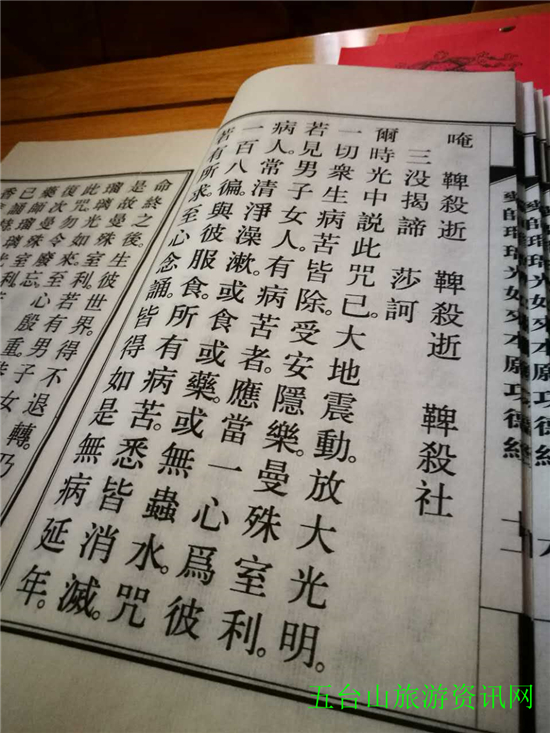 藥師瑠璃光如來本願功德經
十一
唵 鞞殺逝 鞞殺逝 鞞殺社
三没揭諦 莎訶
爾時光中説此咒已。大地震動。放大光明。
一切衆生病苦皆除。受安隱樂。曼殊室利。
若見男子女人。有病苦者。應當一心爲彼
病人。常清淨澡漱。或食或藥。或無蟲水。咒
一百八徧。與彼服食。所有病苦。悉皆消滅。
若有所求。至心念誦。皆得如是無病延年。
命終之後。生彼世界。得不退轉。乃
是故曼殊室利。若有男子女
瑠璃光如來。至心殷重。恭
此咒勿令廢忘。
復次曼殊室利
藥師瑠璃光
已誦
香
五台山旅游资讯网